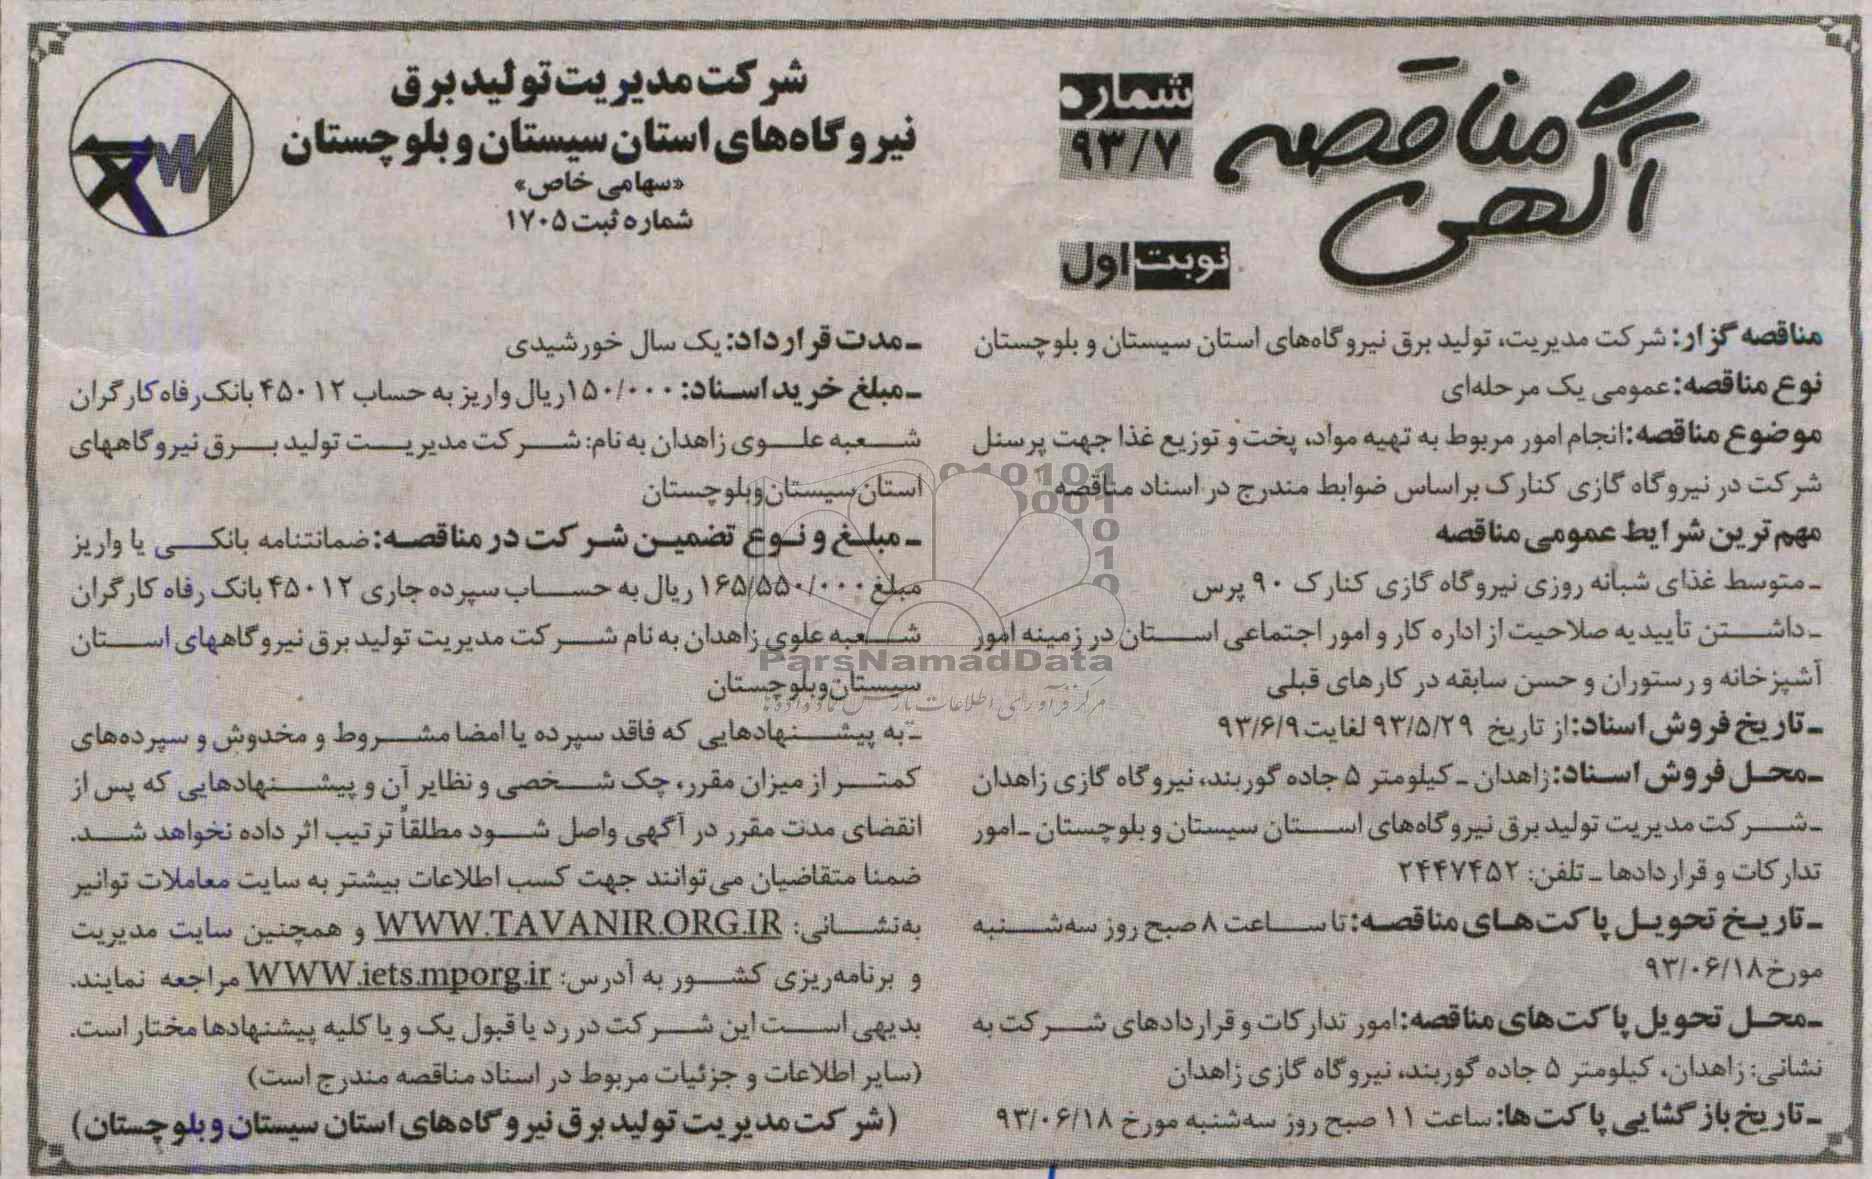 آگهی مناقصه
شماره
۹۳/۷
نوبت اول
شرکت مدیریت تولید برق
نیروگاه‌های استان سیستان و بلوچستان
«سهامی خاص»
شماره ثبت ۱۷۰۵
مناقصه گزار: شرکت مدیریت، تولید برق نیروگاه‌های استان سیستان و بلوچستان
نوع مناقصه: عمومی یک مرحله‌ای
موضوع مناقصه: انجام امور مربوط به تهیه مواد، پخت و توزیع غذا جهت پرسنل
شرکت در نیروگاه گازی کنارک براساس ضوابط مندرج در اسناد مناقصه
مهم ترین شرایط عمومی مناقصه
ـ متوسط غذای شبانه روزی نیروگاه گازی کنارک ۹۰ پرس
ـ داشتن تأییدیه صلاحیت از اداره کار و امور اجتماعی استان در زمینه امور
آشپزخانه و رستوران و حسن سابقه در کارهای قبلی
ـ تاریخ فروش اسناد: از تاریخ ۹۳/۵/۲۹ لغایت ۹۳/۶/۹
ـ محل فروش اسناد: زاهدان ـ کیلومتر ۵ جاده گوربند، نیروگاه گازی زاهدان
ـ شرکت مدیریت تولید برق نیروگاه‌های استان سیستان و بلوچستان ـ امور
تدارکات و قراردادها ـ تلفن: ۲۴۴۷۴۵۲
ـ تاریخ تحویل پاکت‌های مناقصه: تا ساعت ۸ صبح روز سه‌شنبه
مورخ ۹۳/۰۶/۱۸
ـ محل تحویل پاکت‌های مناقصه: امور تدارکات و قراردادهای شرکت به
نشانی: زاهدان، کیلومتر ۵ جاده گوربند، نیروگاه گازی زاهدان
ـ تاریخ بازگشایی پاکت‌ها: ساعت ۱۱ صبح روز سه‌شنبه مورخ ۹۳/۰۶/۱۸
ـ مدت قرارداد: یک سال خورشیدی
ـ مبلغ خرید اسناد: ۱۵۰/۰۰۰ ریال واریز به حساب ۴۵۰۱۲ بانک رفاه کارگران
شعبه علوی زاهدان به نام: شرکت مدیریت تولید برق نیروگاههای
استان سیستان و بلوچستان
ـ مبلغ و نوع تضمین شرکت در مناقصه: ضمانتنامه بانکی یا واریز
مبلغ ۱۶۵/۵۵۰/۰۰۰ ریال به حساب سپرده جاری ۴۵۰۱۲ بانک رفاه کارگران
شعبه علوی زاهدان به نام شرکت مدیریت تولید برق نیروگاههای استان
سیستان و بلوچستان
ـ به پیشنهادهایی که فاقد سپرده یا امضا مشروط و مخدوش و سپرده‌های
کمتر از میزان مقرر، چک شخصی و نظایر آن و پیشنهادهایی که پس از
انقضای مدت مقرر در آگهی واصل شود مطلقاً ترتیب اثر داده نخواهد شد.
ضمنا متقاضیان می‌توانند جهت کسب اطلاعات بیشتر به سایت معاملات توانیر
به‌نشانی: WWW.TAVANIR.ORG.IR و همچنین سایت مدیریت
و برنامه‌ریزی کشور به آدرس: WWW.iets.mporg.ir مراجعه نمایند.
بدیهی است این شرکت در رد یا قبول یک و یا کلیه پیشنهادها مختار است.
(سایر اطلاعات و جزئیات مربوط در اسناد مناقصه مندرج است)
(شرکت مدیریت تولید برق نیروگاه‌های استان سیستان و بلوچستان)
ParsNamadData